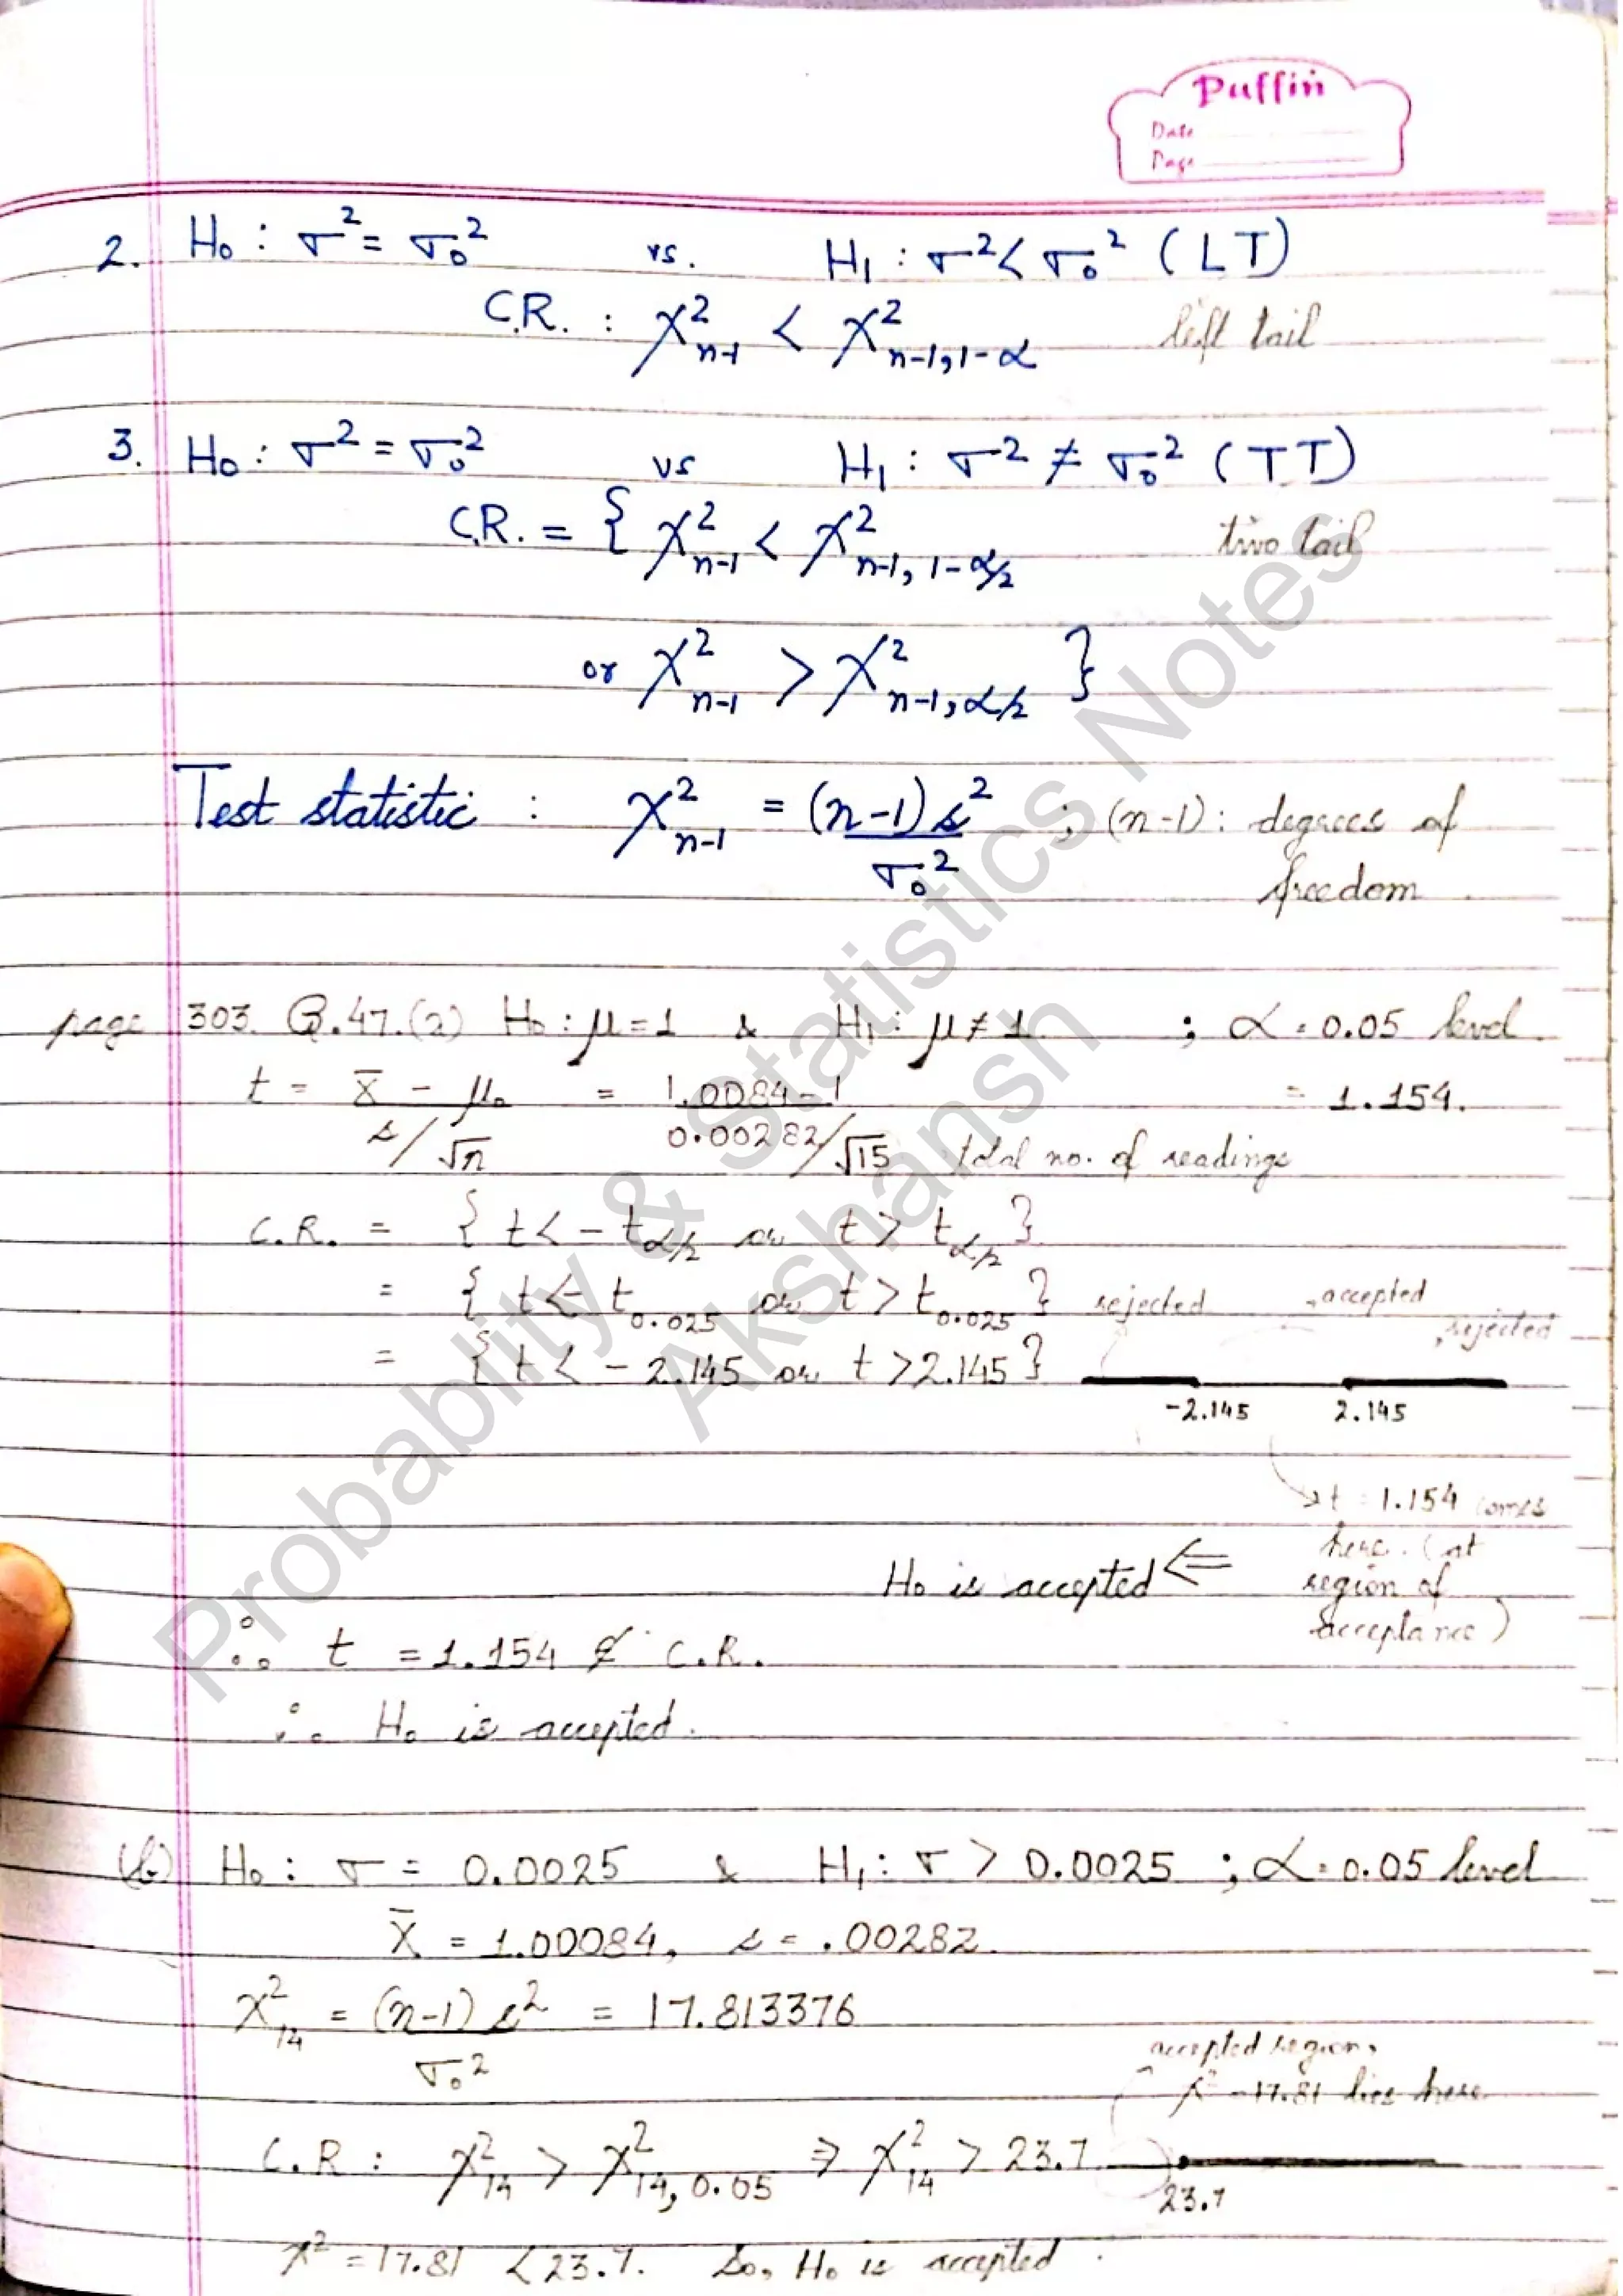 Puffin
Date
Page
2. H₀ : σ² = σ₀² vs. H₁ : σ² < σ₀² (LT)
C.R. : χ²ₙ₋₁ < χ²ₙ₋₁,₁₋α left tail
3. H₀ : σ² = σ₀² vs H₁ : σ² ≠ σ₀² (TT)
C.R. = { χ²ₙ₋₁ < χ²ₙ₋₁, ₁₋α/₂ two tail
or χ²ₙ₋₁ > χ²ₙ₋₁, α/₂ }
Test statistic : χ²ₙ₋₁ = (n-1)s² / σ₀² ; (n-1) : degrees of
freedom
page 303. Q.47.(a) H₀ : μ = 1 & H₁ : μ ≠ 1 ; α = 0.05 level
t = x̄ - μ₀ / s/√n = 1.0084-1 / 0.00282/√15 = 1.154.
total no. of readings
C.R. = { t < - tα/₂ or t > tα/₂ }
= { t < - t0.025 or t > t0.025 } rejected accepted rejected
= { t < - 2.145 or t > 2.145 }
-2.145 2.145
t = 1.154 comes
here. (at
H₀ is accepted ⇐ region of
acceptance)
∵ t = 1.154 ∉ C.R.
∴ H₀ is accepted.
(b) H₀ : σ = 0.0025 & H₁ : σ > 0.0025 ; α = 0.05 level
X̄ = 1.00084, s = .00282.
χ²₁₄ = (n-1) s² / σ₀² = 17.813376
accepted region,
χ² = 17.81 lies here
C.R : χ²₁₄ > χ²₁₄, 0.05 ⇒ χ²₁₄ > 23.7
23.7
χ² = 17.81 < 23.7. So, H₀ is accepted.
Probablity & Statistics Notes
Akshansh